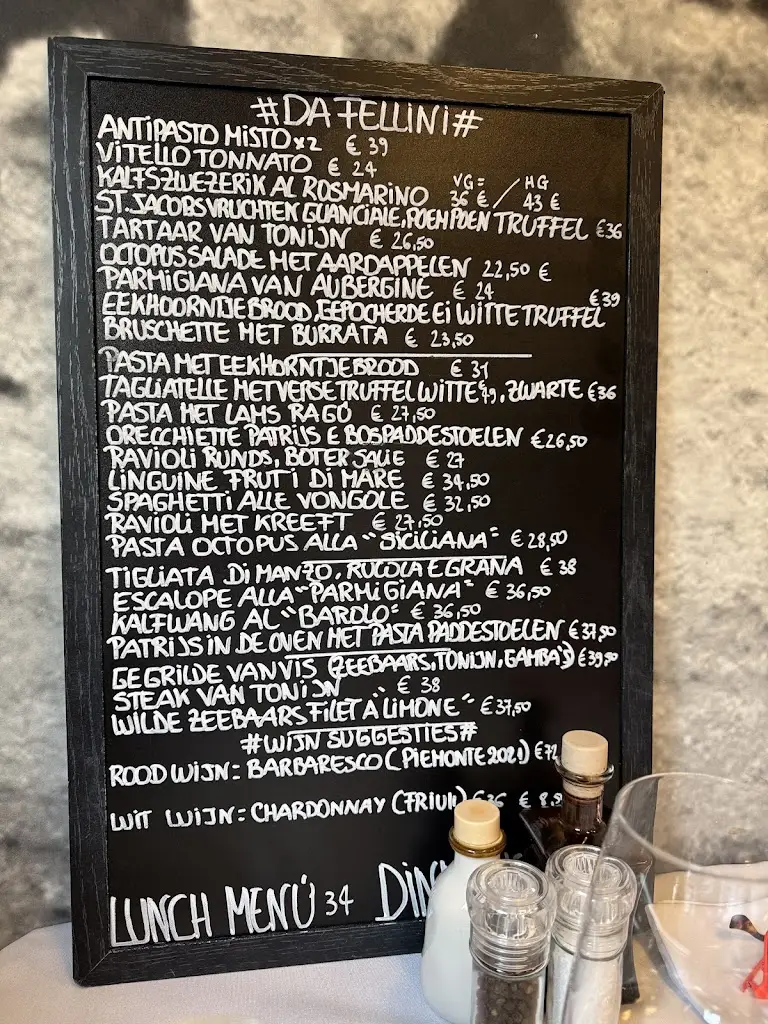 #DA FELLINI#
ANTIPASTO MISTO x2 € 39
VITELLO TONNATO € 24
KALFSZWEZERIK AL ROSMARINO VG= 36 € / HG 43 €
ST. JACOBSVRUCHTEN GUANCIALE, POEMPOEN TRUFFEL €36
TARTAAR VAN TONIJN € 26,50
OCTOPUSSALADE MET AARDAPPELEN 22,50 €
PARMIGIANA VAN AUBERGINE € 24
EEKHOORNTJEBROOD, GEPOCHERDE Ei WITTE TRUFFEL €39
BRUSCHETTE MET BURRATA € 23,50
PASTA MET EEKHORNTJEBROOD € 31
TAGLIATELLE MET VERSE TRUFFEL WITTE €49, ZWARTE €36
PASTA MET LAMS RAGÚ € 27,50
ORECCHIETTE PATRIJS E BOSPADDESTOELEN €26,50
RAVIOLI RUNDS, BOTER SALIE € 27
LINGUINE FRUTI DI MARE € 34,50
SPAGHETTI ALLE VONGOLE € 32,50
RAVIOLI MET KREEFT € 27,50
PASTA OCTOPUS ALLA "SICILIANA" € 28,50
TIGLIATA DI MANZO, RUCOLA E GRANA € 38
ESCALOPE ALLA "PARMIGIANA" € 36,50
KALFWANG AL "BAROLO" € 36,50
PATRIJS IN DE OVEN MET PASTA PADDESTOELEN €37,50
GEGRILDE VAN VIS (ZEEBAARS, TONIJN, GAMBA'S) €39,50
STEAK VAN TONIJN € 38
WILDE ZEEBAARS FILET "A LIMONE" €37,50
#WIJN SUGGESTIES#
ROOD WIJN= BARBARESCO (PIEMONTE 2021) €72
WIT WIJN= CHARDONNAY (FRIULI) €36 € 8,5
LUNCH MENÚ 34